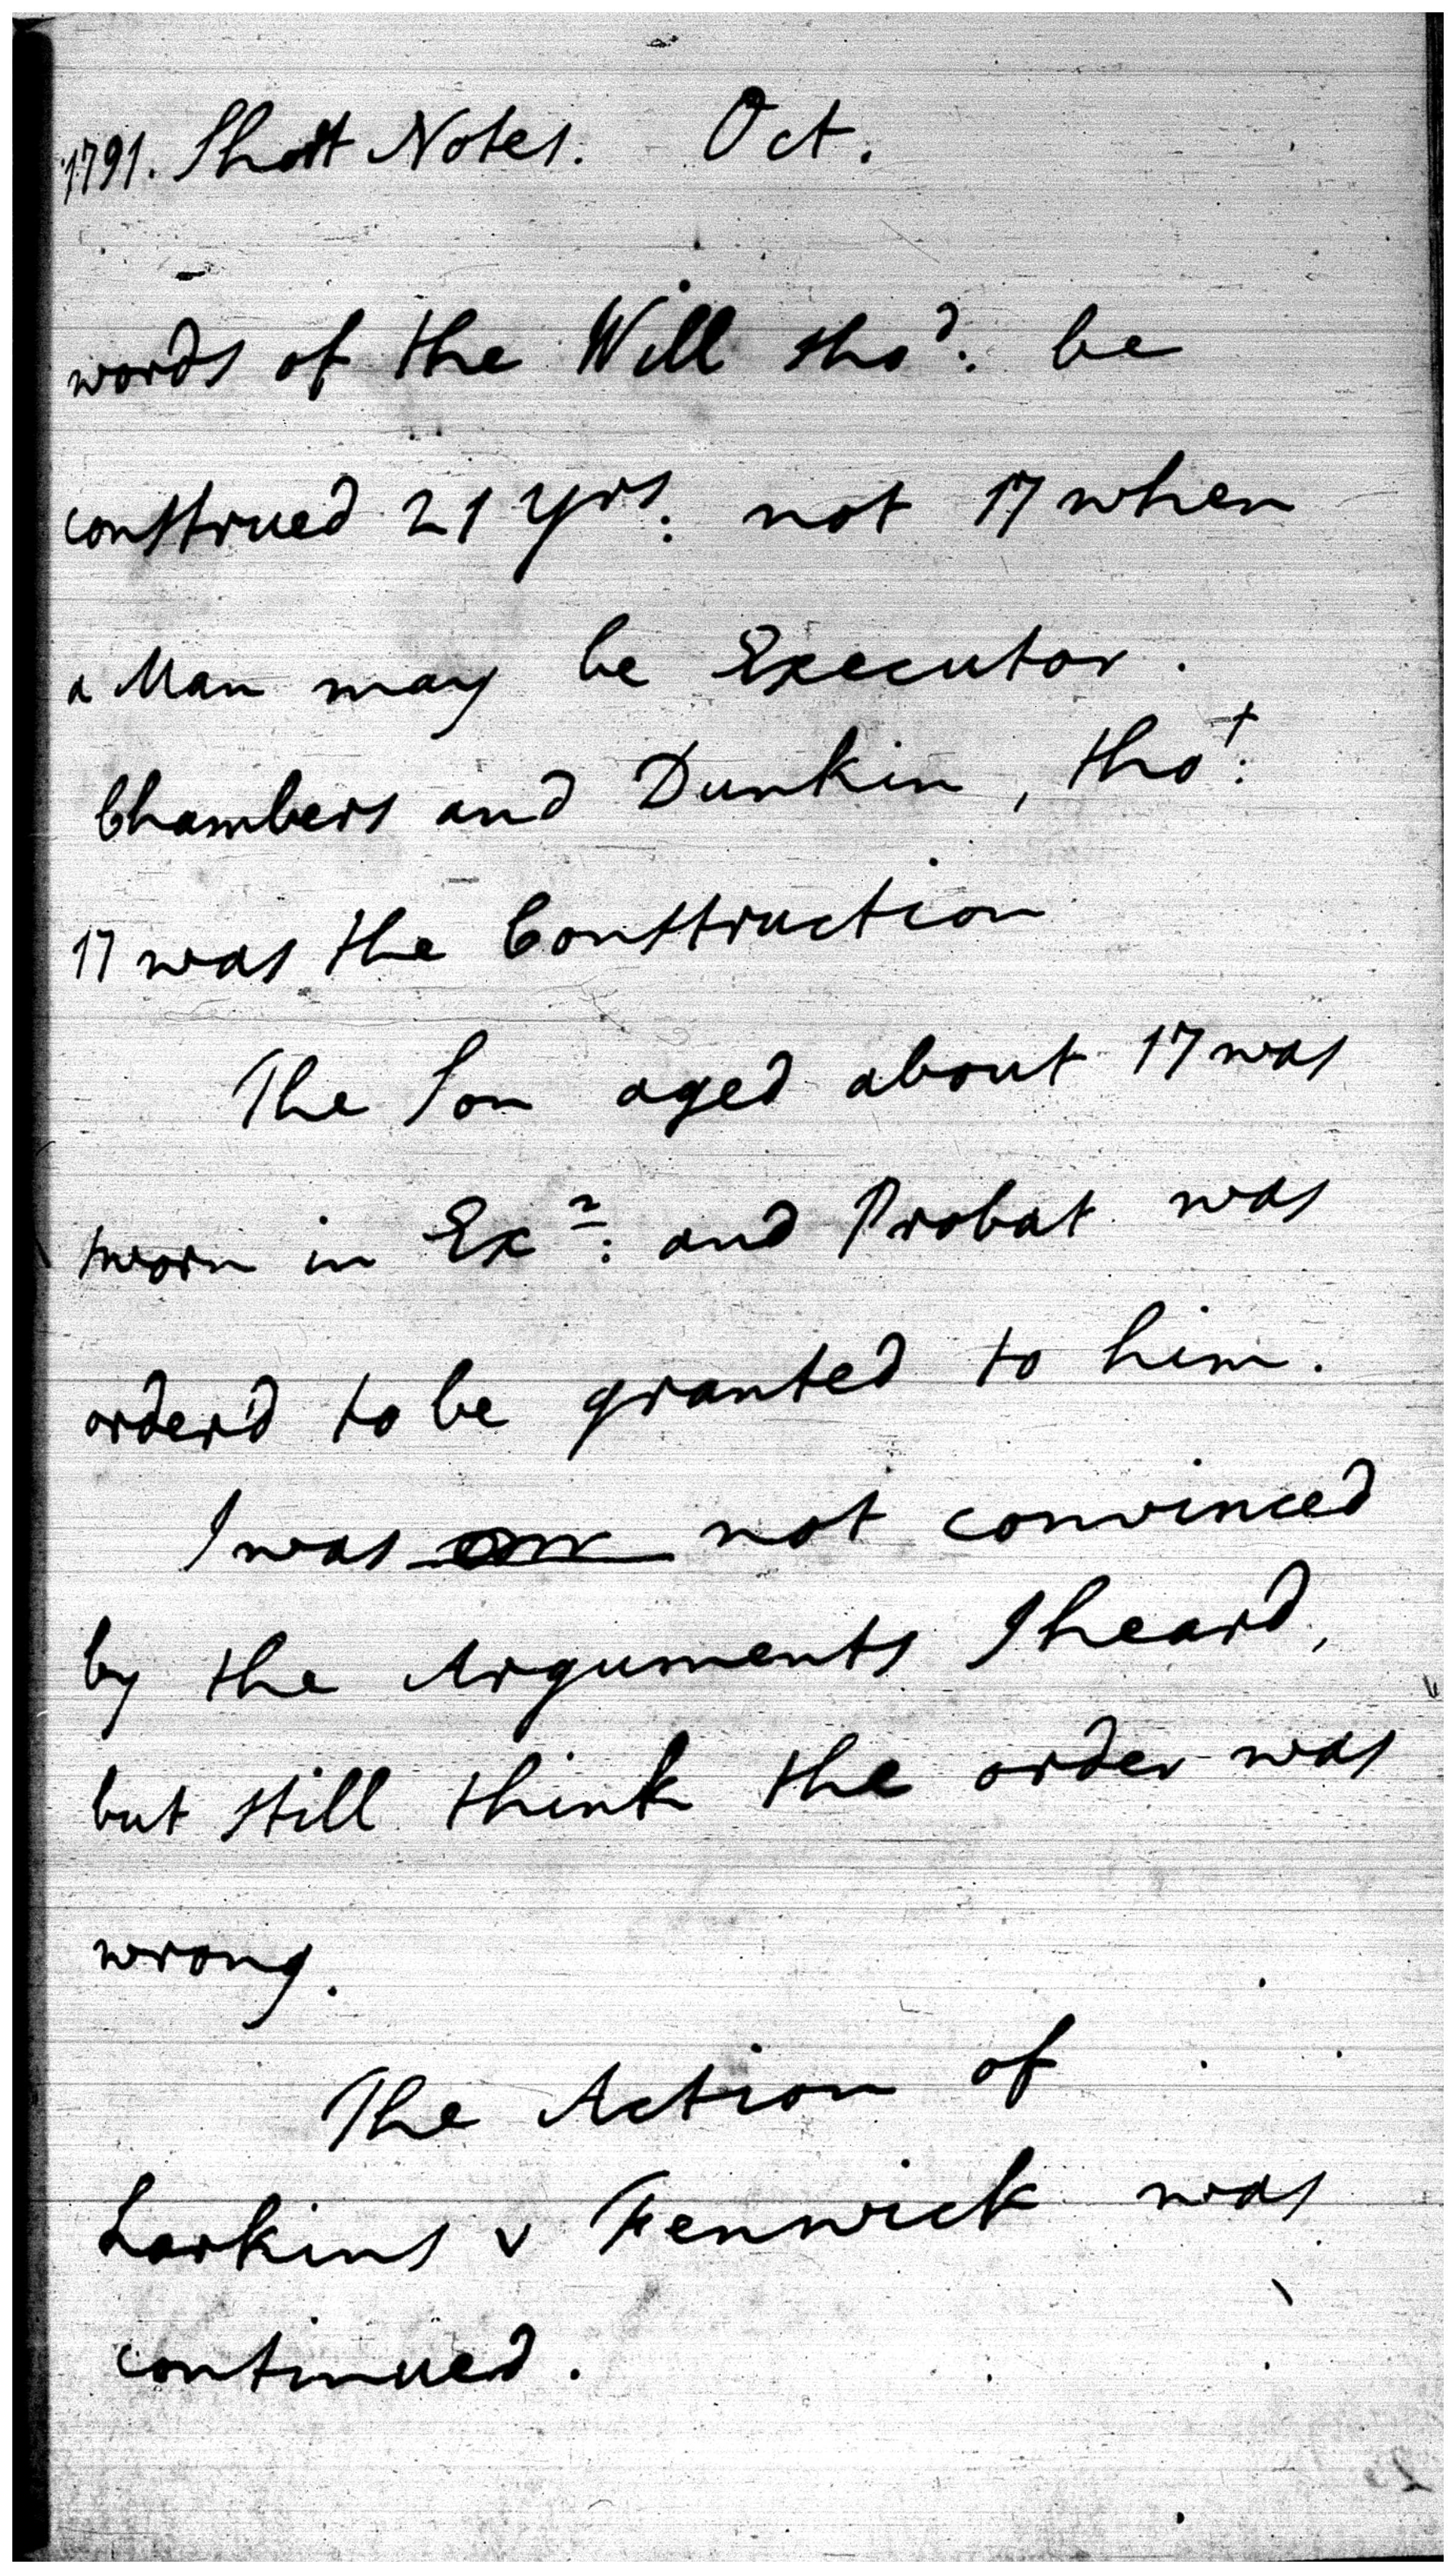 1791. Short Notes. Oct.
words of the Will sho^d: be
construed 21 yrs: not 17 when
a Man may be Executor.
Chambers and Dunkin, tho^t:
17 was the Construction
The Son aged about 17 was
sworn in Ex^n: and Probat was
order'd to be granted to him.
I was not convinced
by the Arguments I heard,
but still think the order was
wrong.
The Action of
Larkins v Fenwick was
continued.